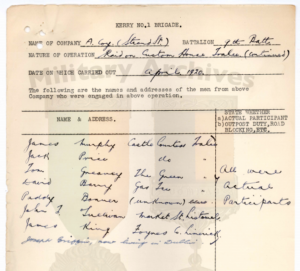 KERRY NO.1 BRIGADE.
NAME OF COMPANY A. Coy. (Strand St.) BATTALION 9th Batt.
NATURE OF OPERATION Raid on Custom House Tralee (continued)
DATE ON WHICH CARRIED OUT April 1920.
The following are the names and addresses of the men from above
Company who were engaged in above operation.
NAME & ADDRESS.
STATE WHETHER
a) ACTUAL PARTICIPANT
b) OUTPOST DUTY, ROAD
BLOCKING, ETC.
James Murphy Castle Countess Tralee
Jack Power do
Tom Greaney The Green All were
David Barry Gas Tce Actual
Paddy Bonner (unknown) Participants
John J. O'Sullivan Market St. Listowel
James King Foynes Co. Limerick
Joseph Griffin, now living in Dublin
Military Archives